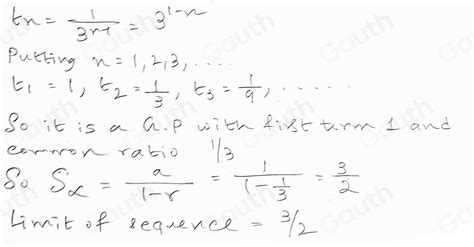 tn = 1/3^(n-1) = 3^(1-n)
Putting n = 1, 2, 3, ....
t₁ = 1, t₂ = 1/3, t₃ = 1/9, ......
So it is a G.P with first term 1 and
common ratio 1/3
So S∝ = a/(1-r) = 1/(1-1/3) = 3/2
Limit of sequence = 3/2
Gauth